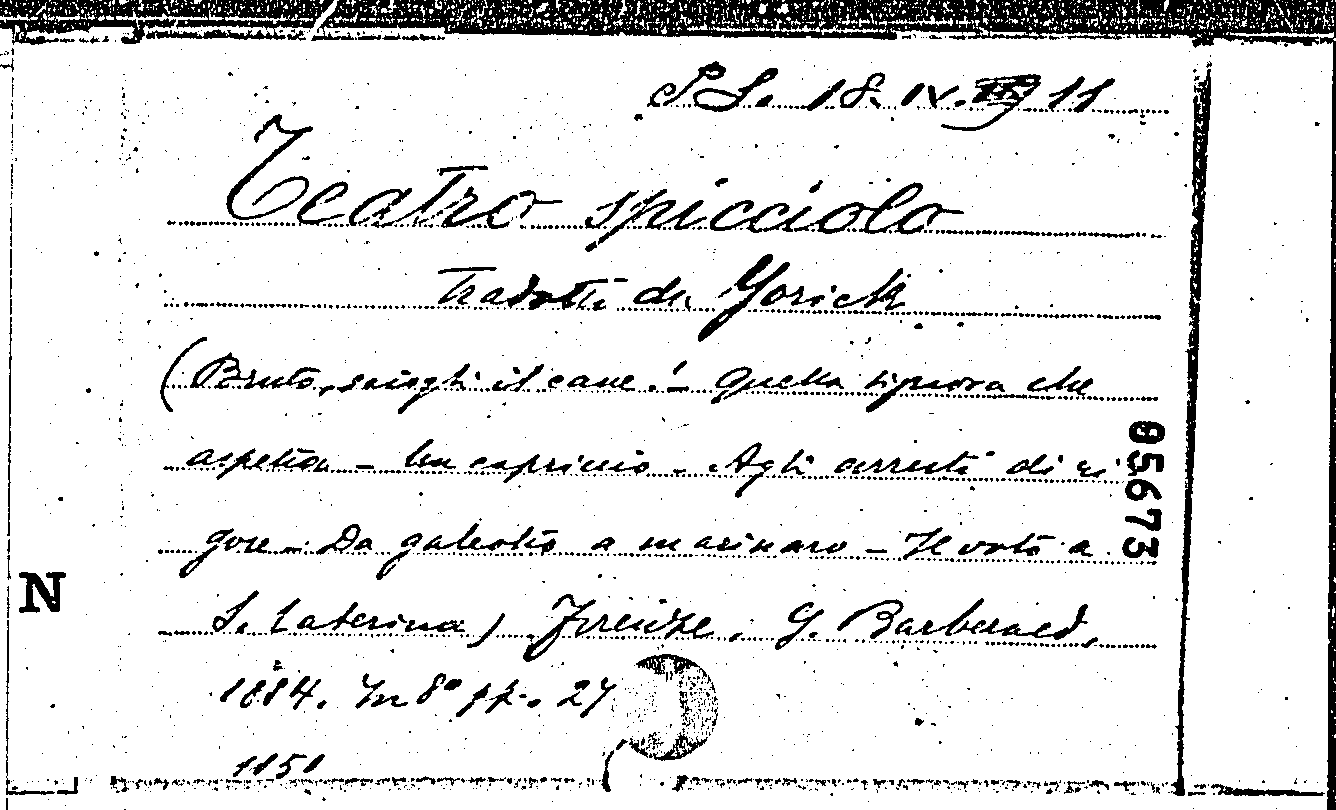 P S. 18. IV. 11
Teatro spicciolo
Tradotti da Yorick
(Bruto, sciogli il cane! - Quella signora che
aspetta - Un capriccio - Agli arresti di ri
gore - Da galeotto a marinaro - Il voto a
S. Caterina) Firenze, G. Barbera ed,
1884. In 8° pp. 27
1150
85673
N